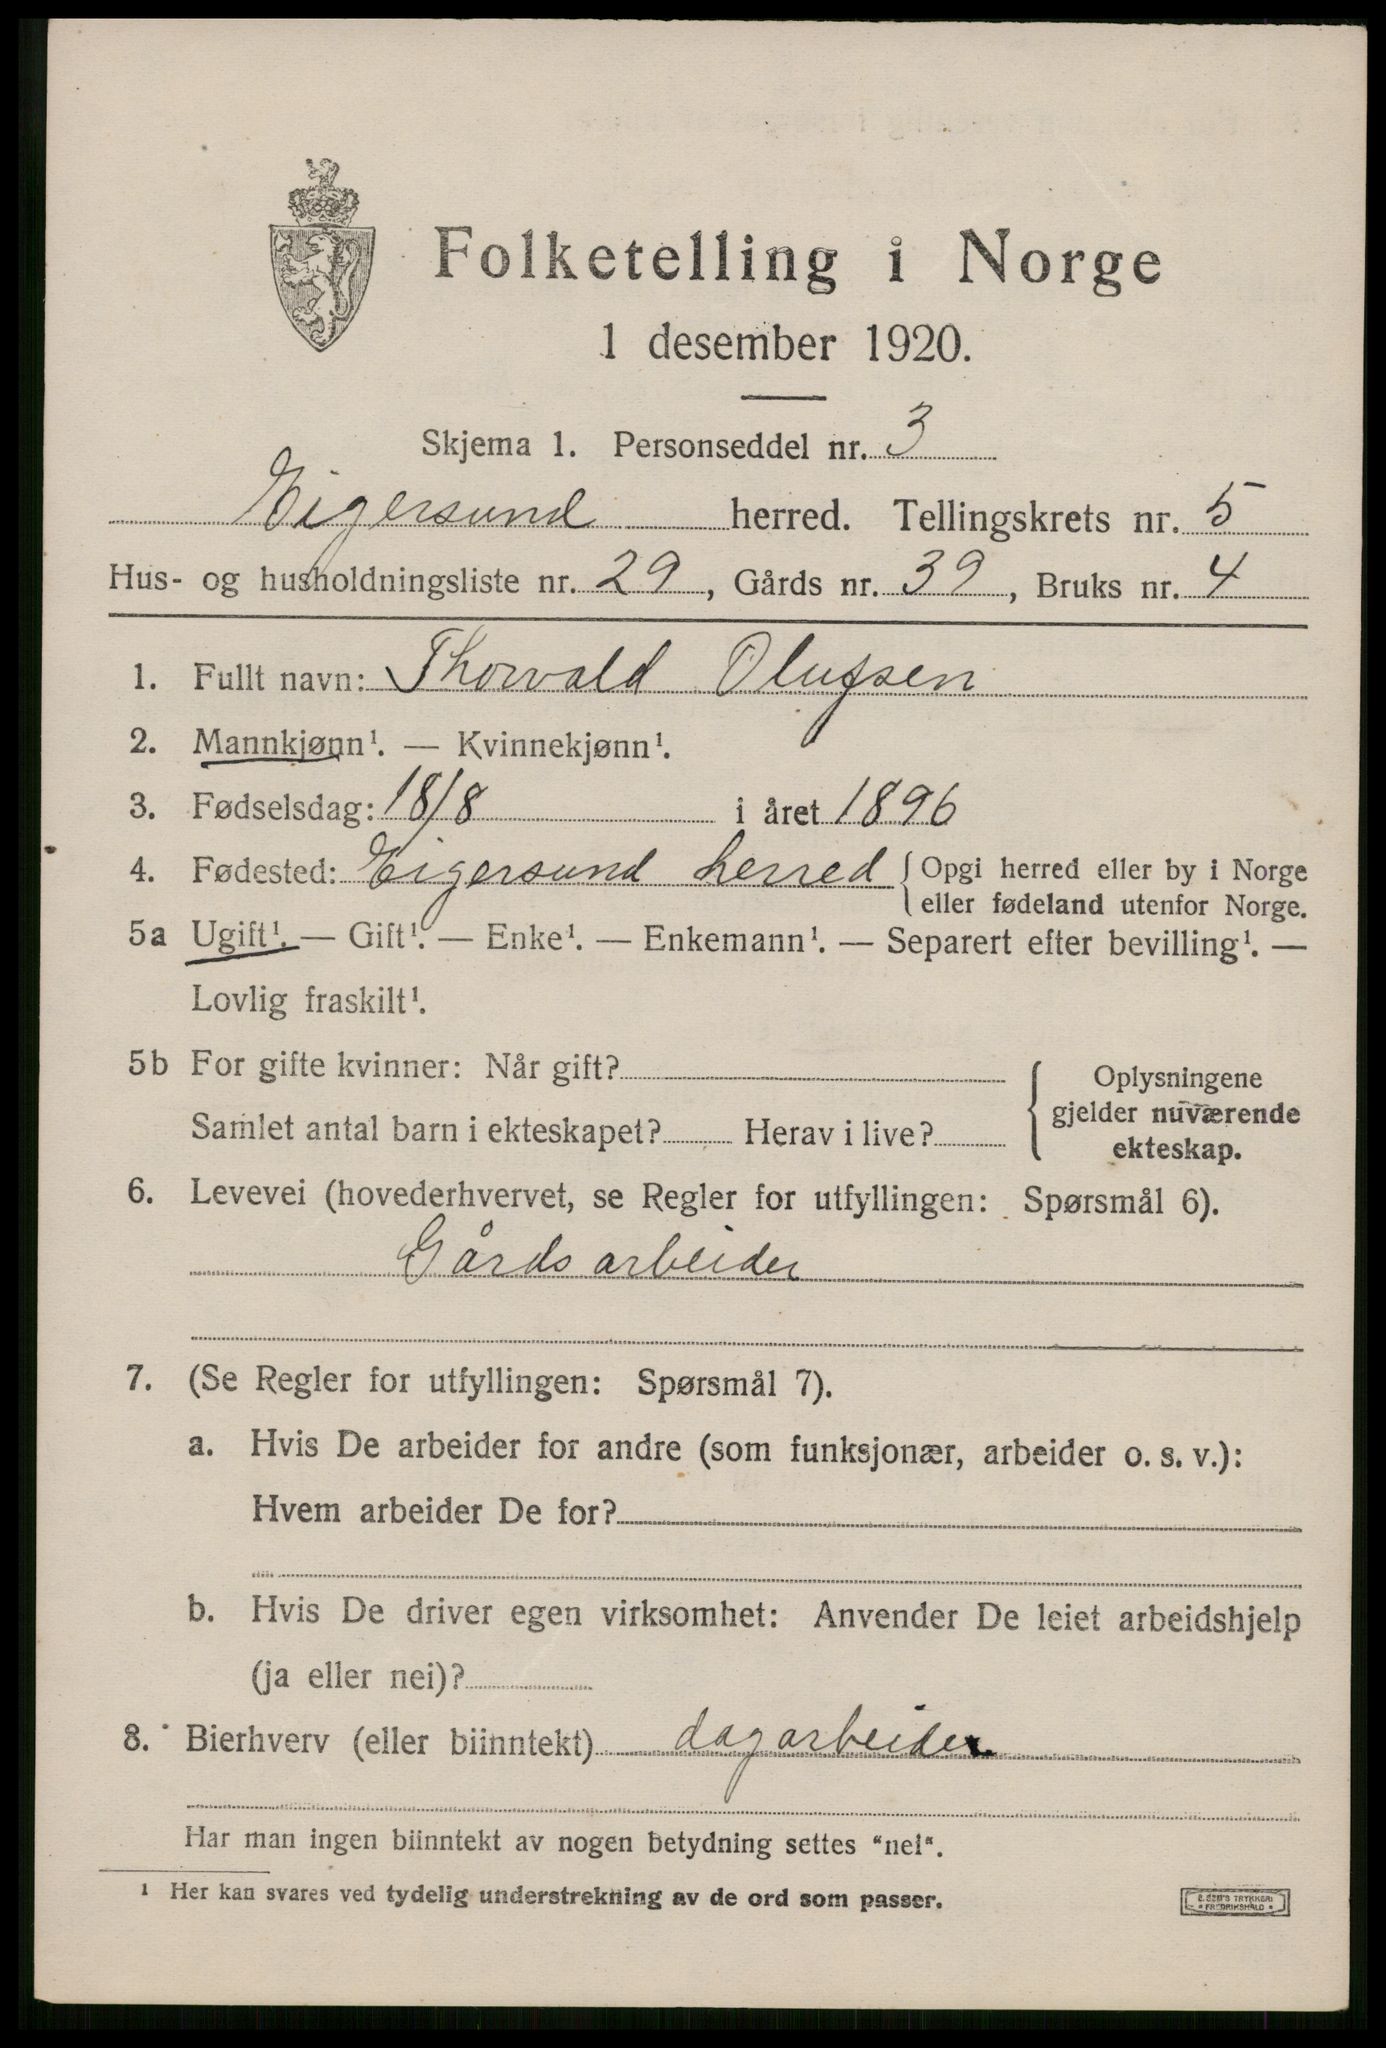 Folketelling i Norge
1 desember 1920.
Skjema 1. Personseddel nr. 3
Eigersund herred. Tellingskrets nr. 5
Hus- og husholdningsliste nr. 29, Gårds nr. 39, Bruks nr. 4
1. Fullt navn: Thorvald Olufsen
2. Mannkjønn¹. — Kvinnekjønn¹.
3. Fødselsdag: 18/8 i året 1896
4. Fødested: Eigersund herred { Opgi herred eller by i Norge
eller fødeland utenfor Norge.
5a Ugift¹. — Gift¹. — Enke¹. — Enkemann¹. — Separert efter bevilling¹. —
Lovlig fraskilt¹.
5b For gifte kvinner: Når gift?
Samlet antal barn i ekteskapet? Herav i live?
Oplysningene
gjelder nuværende
ekteskap.
6. Levevei (hovederhvervet, se Regler for utfyllingen: Spørsmål 6).
Gårdsarbeider
7. (Se Regler for utfyllingen: Spørsmål 7).
a. Hvis De arbeider for andre (som funksjonær, arbeider o. s. v.):
Hvem arbeider De for?
b. Hvis De driver egen virksomhet: Anvender De leiet arbeidshjelp
(ja eller nei)?
8. Bierhverv (eller biinntekt) dagarbeider
Har man ingen biinntekt av nogen betydning settes "nei".
¹ Her kan svares ved tydelig understrekning av de ord som passer.
E. SEM'S TRYKKERI
FREDRIKSHALD